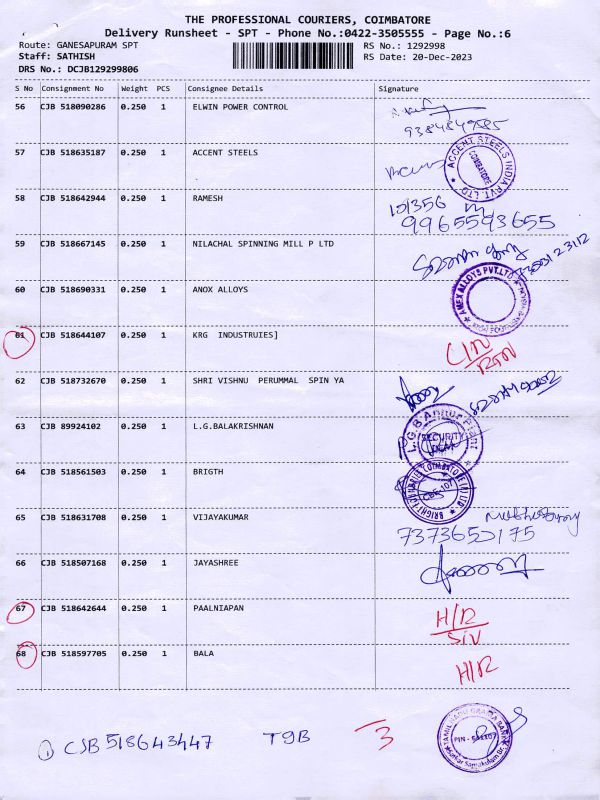 THE PROFESSIONAL COURIERS, COIMBATORE
Delivery Runsheet - SPT - Phone No.:0422-3505555 - Page No.:6
Route: GANESAPURAM SPT RS No.: 1292998
Staff: SATHISH RS Date: 20-Dec-2023
DRS No.: DCJB129299806
S No Consignment No Weight PCS Consignee Details Signature
56 CJB 518090286 0.250 1 ELWIN POWER CONTROL
57 CJB 518635187 0.250 1 ACCENT STEELS
ACCENT STEELS INDIA PVT. LTD
COIMBATORE
58 CJB 518642944 0.250 1 RAMESH
101356
9965593655
59 CJB 518667145 0.250 1 NILACHAL SPINNING MILL P LTD
60 CJB 518690331 0.250 1 ANOX ALLOYS
ALLOYS PVT. LTD
61 CJB 518644107 0.250 1 KRG INDUSTRUIES]
62 CJB 518732670 0.250 1 SHRI VISHNU PERUMMAL SPIN YA
63 CJB 89924102 0.250 1 L.G.BALAKRISHNAN
SECURITY
64 CJB 518561503 0.250 1 BRIGTH
65 CJB 518631708 0.250 1 VIJAYAKUMAR
7373650175
66 CJB 518507168 0.250 1 JAYASHREE
67 CJB 518642644 0.250 1 PAALNIAPAN
H/R
68 CJB 518597705 0.250 1 BALA
H/R
1 CJB 518643447 TGB 3
TAMIL NADU GRAMA BANK